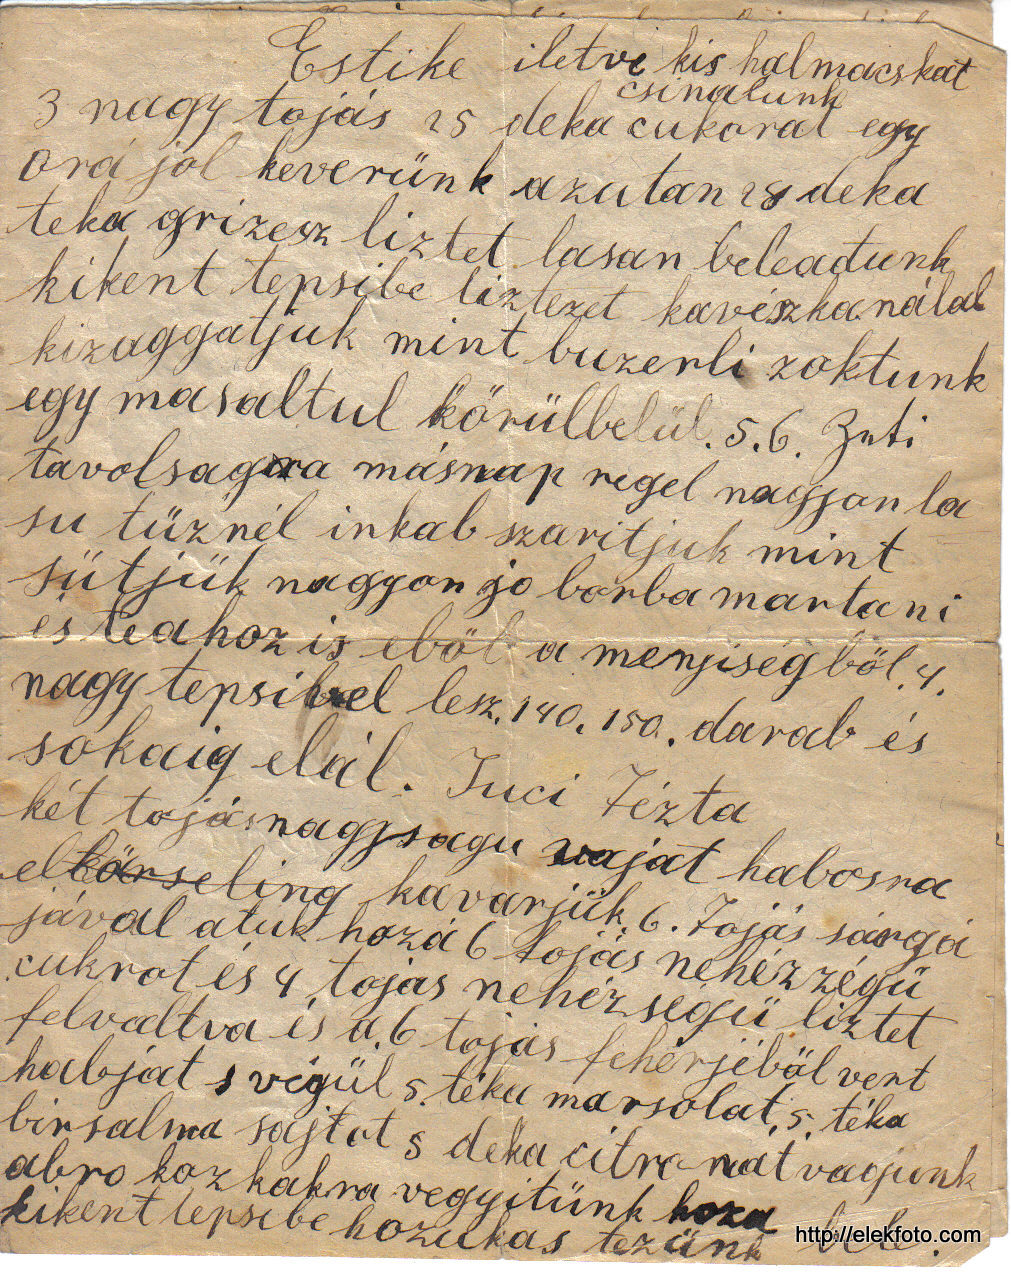 Estike iletve kis halmacskát
csinálunk
3 nagy tojás 25 deka cukoral egy
orá jol keverünk azutan 28 deka
teka grizesz liztet lasan beleadunk
kikent tepsibe liztezet kavészkanálal
kizaggatjuk mint buzerli zoktunk
egy masaltul körülbelül. 5.6. Zuti
tavolsagra másnap regel nagyon la
su tüznél inkab szaritjuk mint
sütjük nagyon jo borba martani
és teahoz is eböl a menjiségböl. 4.
nagy tepsivel lesz. 140. 150. darab és
sokaig elál. Juci Tézta
két tojásnagjsagu vajat habosra
el kavarjük. 6. Tojás sárgá
jával atuk hozá 6 tojás nehézzégü
cukrot és 4 tojas nehézségü liztet
felvaltva és a. 6 tojás fehérjéböl vert
habjat s végül 5. téka marsolat, 5. téka
birsalma sajtot 5 deka citronát vagjunk
abro kozkakra vegyitünk hoza
kikent tepsibe hozukas tezünk bele.
http://elekfoto.com